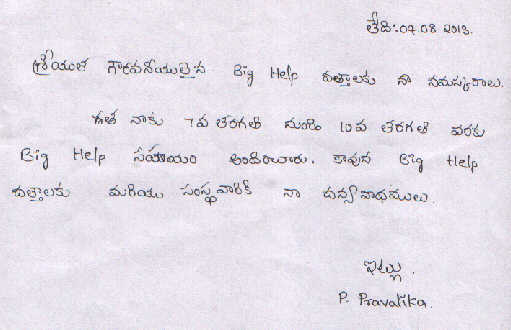 తేది:07.08 2013.
శ్రీయుత గౌరవనీయులైన Big Help దత్తాలకు నా నమస్కారాలు.
గత నాకు 7వ తరగతి నుండి 10వ తరగతి వరకు
Big Help సహాయం అందించారు. కావున Big Help
దత్తాలకు మరియు సంస్థవారికి నా ధన్యవాదములు.
ఇట్లు.
P. Pravalika.